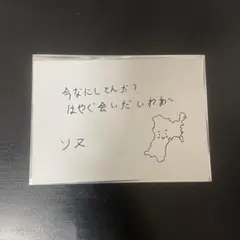 今なにしてんか？
はやぐ会いだいわぁ〜
ソヌ